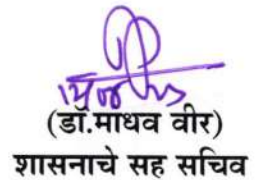 (डॉ.माधव वीर)
शासनाचे सह सचिव